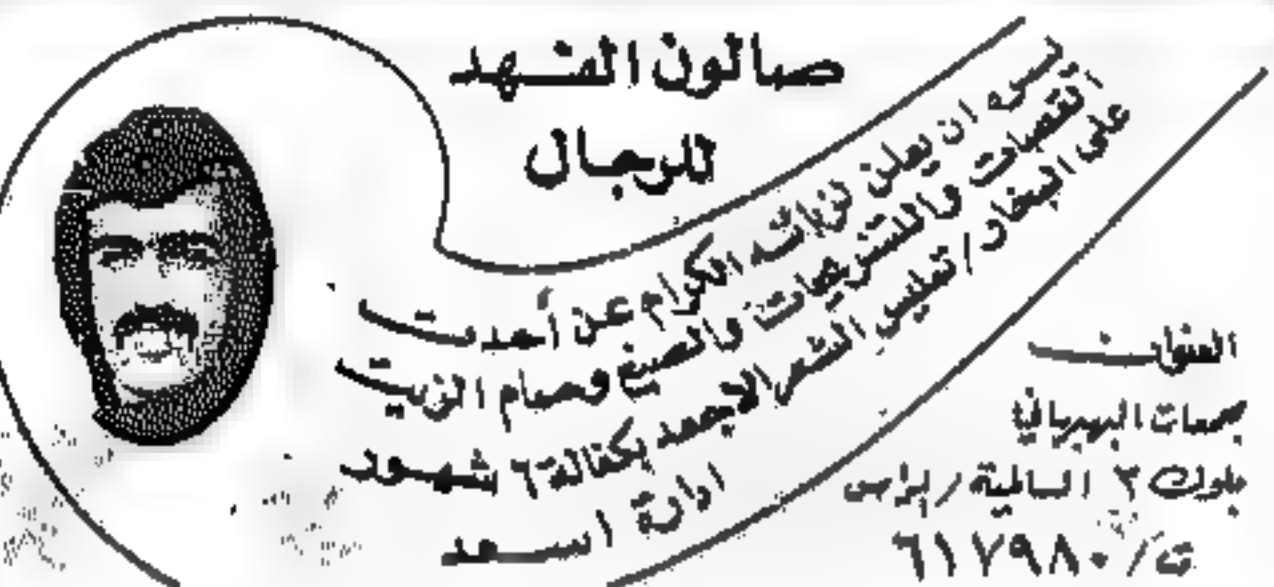 صالون الفهد
للرجال
يسره ان يعلن لزبائنه الكرام عن أحدث
القصات والتسريحات والصبغ وحمام الزيت
على البخار / تمليس الشعر الاجعد بكفالة ٦ شهور
ادارة اسعد
العنوان
بلوك ٢ السالمية /
ت / ٦١٧٩٨٠